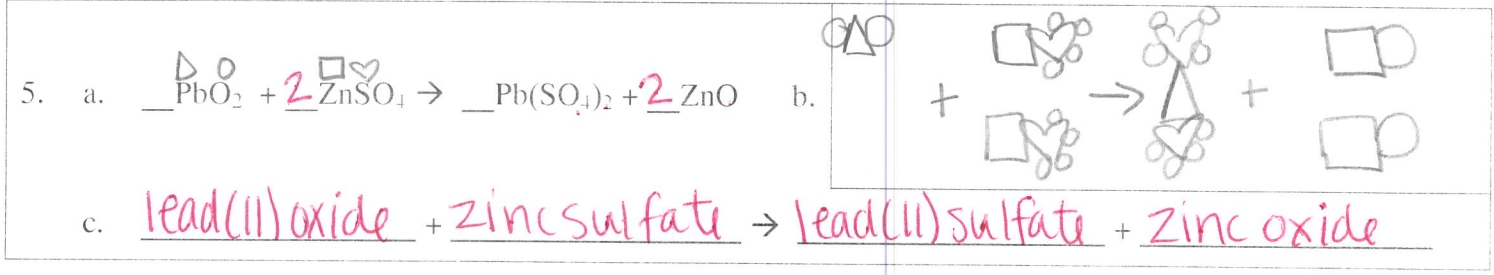 5. a. __PbO₂ + 2 ZnSO₄ → __Pb(SO₄)₂ + 2 ZnO b. + → +
c. lead(II) oxide + zinc sulfate → lead(II) sulfate + zinc oxide